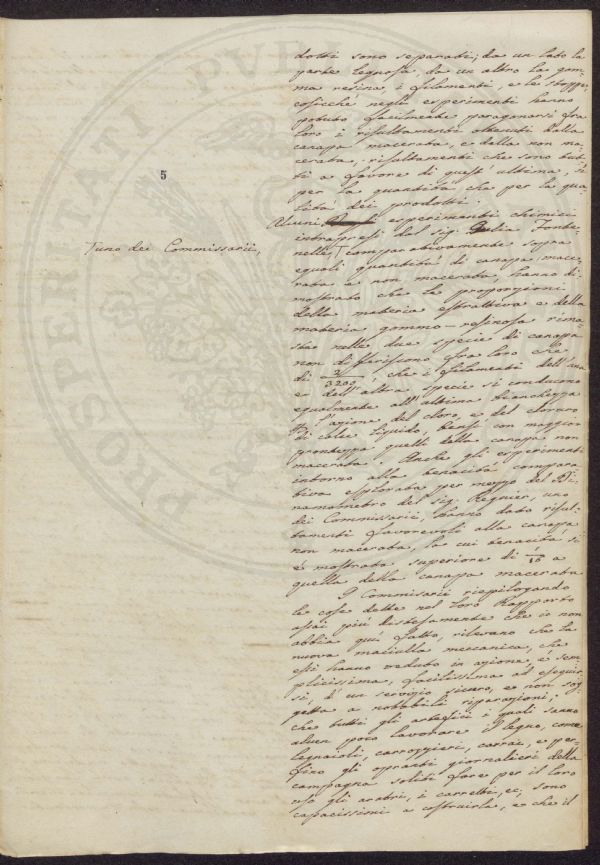 5
dotti sono separati; da un lato la
parte legnosa, da un altro la gom-
ma resina, i filamenti, e le stoppe,
cosicché negli esperimenti hanno
potuto facilmente paragonarsi fra
loro i risultamenti ottenuti dalla
canapa macerata, e della non ma-
cerata, risultamenti che sono tut-
ti a favore di quest'ultima, sì
per la quantità che per la qua-
lità dei prodotti.
Alcuni esperimenti chimici
intrapresi dal sig. Julia Fonte-
nelle, comparativamente sopra
l'uno dei Commissarii,
eguali quantità di canapa mace-
rata e non macerata, hanno di-
mostrato che le proporzioni
della materia estrattiva e della
materia gommo-resinosa rima-
ste nelle due specie di canapa
non differissero fra loro che
di 2/3200, che i filamenti dell'una
e dell'altra specie si conducono
egualmente all'ultima bianchezza
l'azione del cloro, e del cloruro
di calce liquido, bensì con maggior
prontezza quelli della canapa non
macerata. Anche gli esperimenti
intorno alla tenacità compara-
tiva esplorata per mezzo del Di-
namometro del sig. Regnier, uno
dei Commissarii, hanno dato risul-
tamenti favorevoli alla canapa
non macerata, la cui tenacità si
è mostrata superiore di 1/16 a
quella della canapa macerata
I Commisarii riepilogando
le cose dette nel loro Rapporto
assai più distesamente che io non
abbia quì fatto, rilevano che la
nuova maciulla meccanica, che
essi hanno veduto in azione, è sem-
plicissima, facilissima ad eseguir-
si, d'un servizio sicuro, e non sog-
getta a notabili riparazioni;
che tutti gli artefici i quali sanno
alcun poco lavorare il legno, come
legnaioli, carrozzieri, carrai, e per-
fino gli operanti giornalieri della
campagna soliti fare per il loro
uso gli aratri, i carretti, ec, sono
capacissimi a costruirla, e che il